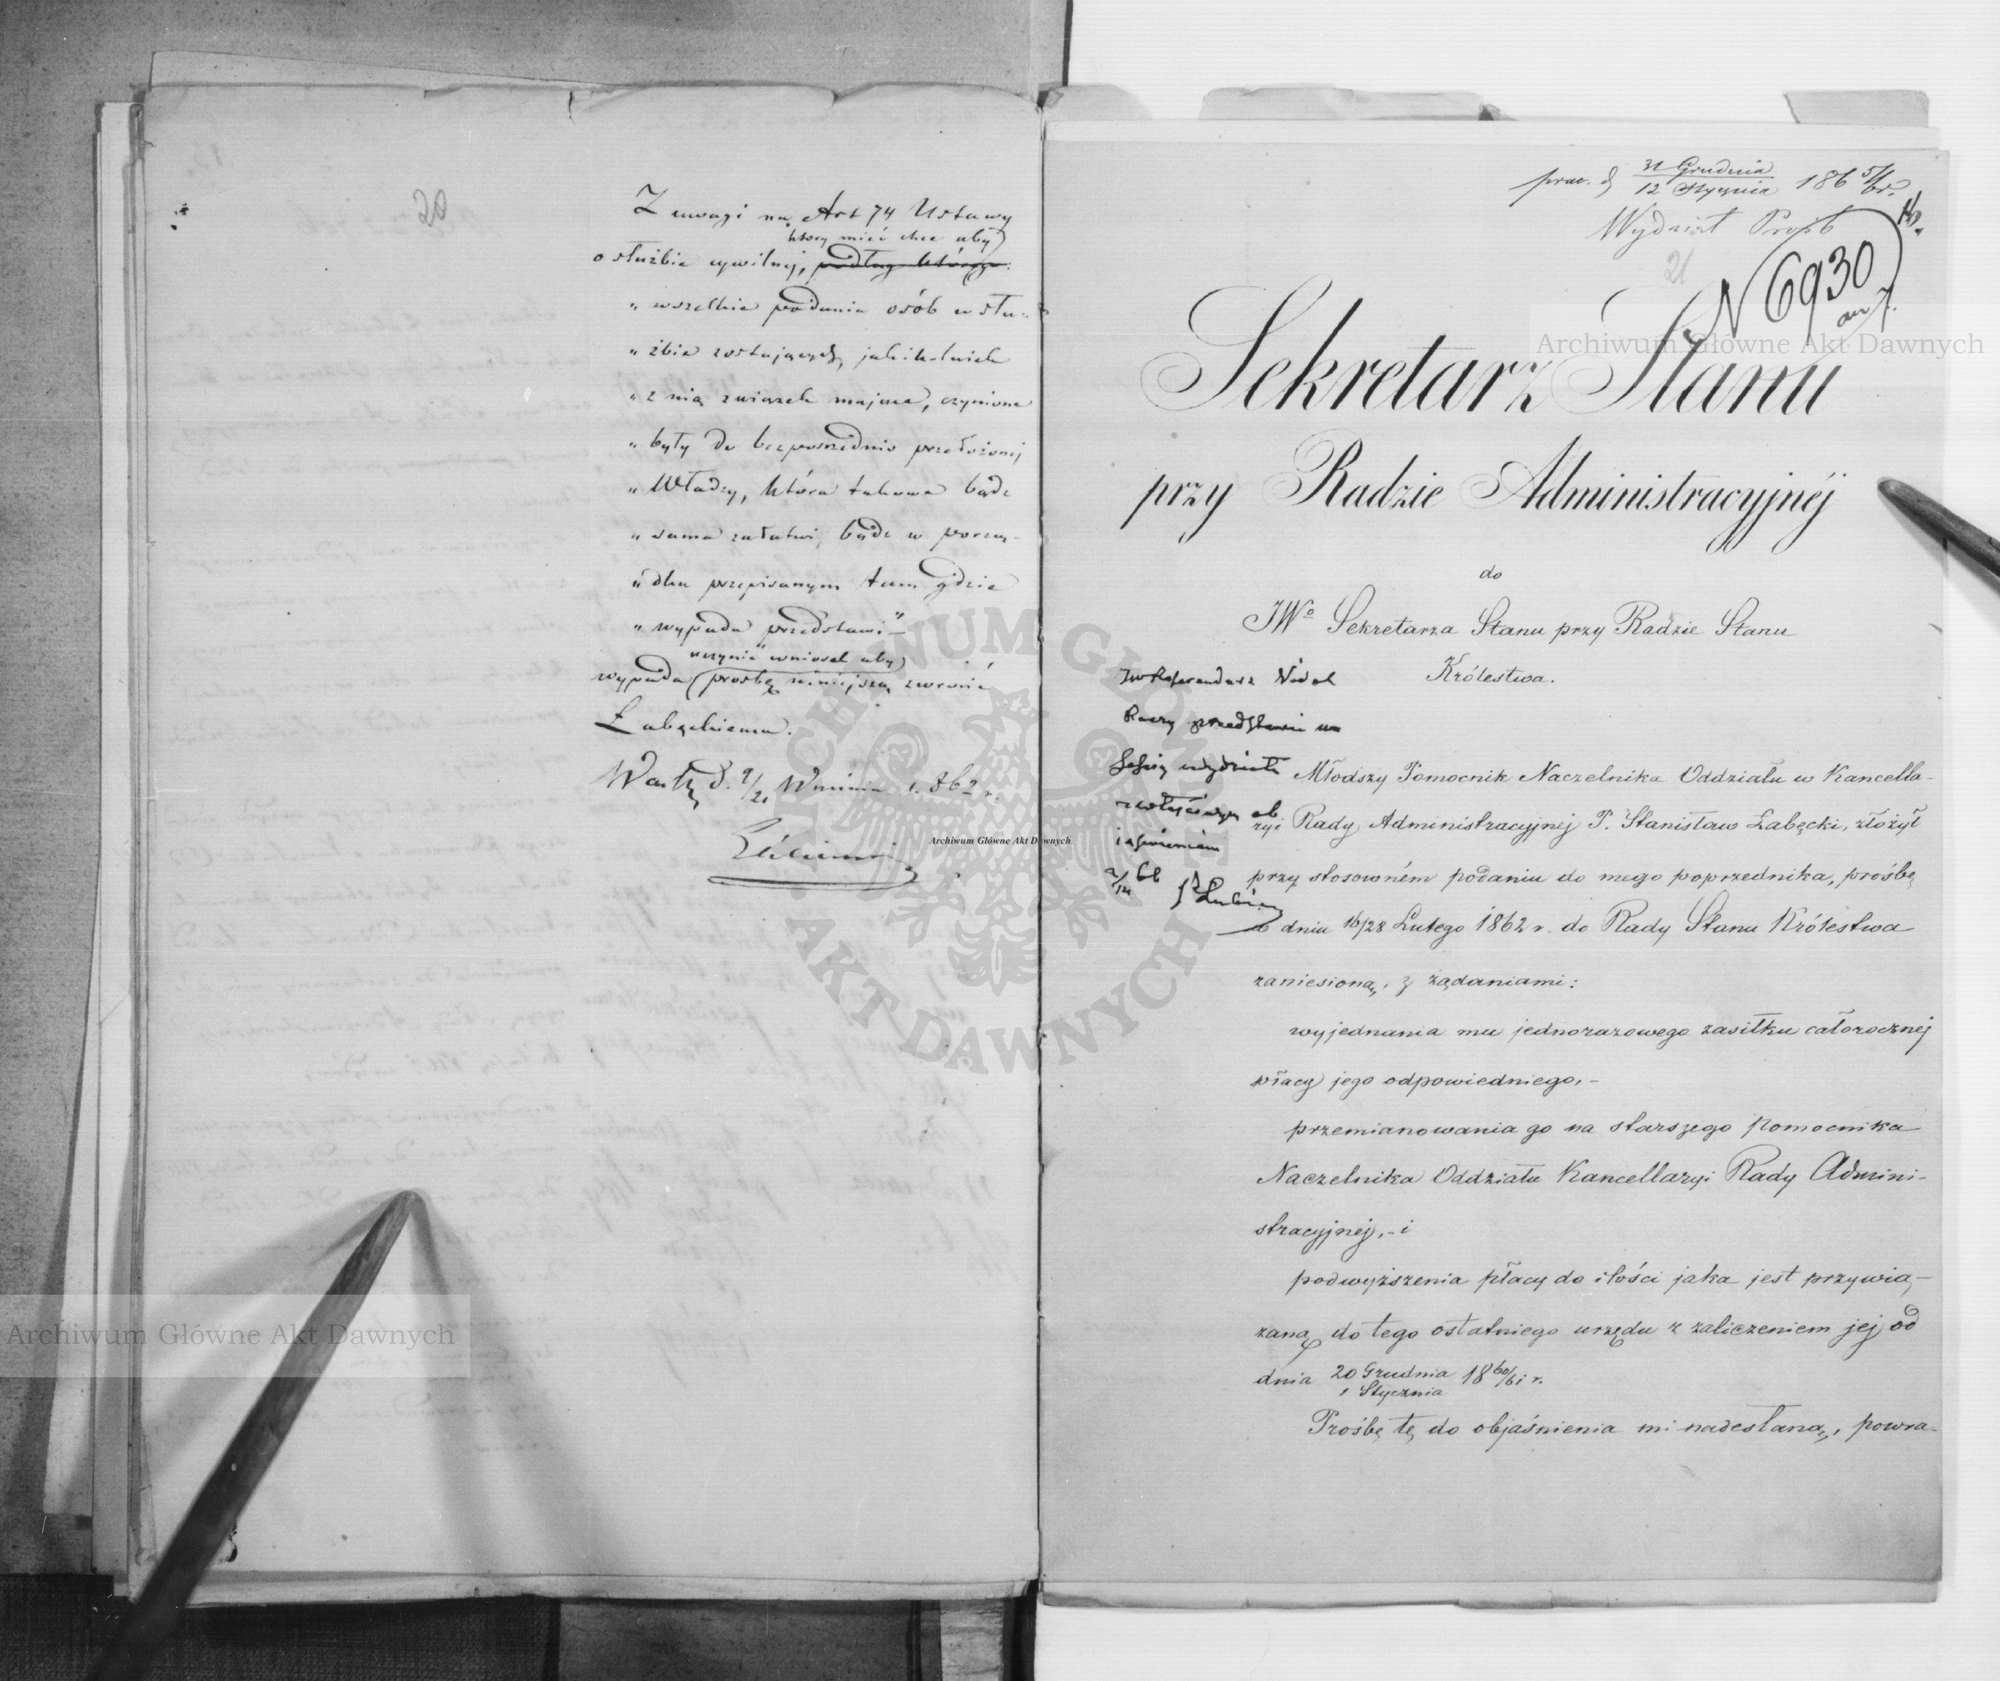 20
Z uwagi na Art 74 Ustawy
który mieć chce aby
o służbie cywilnej, podług którego
„ wszelkie podania osób w słu-
„ żbie zostających jakikolwiek
„ z nią związek mające, czynione
„ były do bezpośrednio przełożonej
„ Władzy, która takowe bądź
„ sama załatwi, bądź w porzą-
„ dku przepisanym tam gdzie
„ wypada przedstawi"
uczynić wniosek aby
wypada prośbę niniejszą zwrócić
Łabęckiemu.
Warsz d. 9/21 Września 1862 r.
prac. d 31 Grudnia
12 Stycznia 1865/6 r.
Wydział Próśb
21
N 6930
Sekretarz Stanu
przy Radzie Administracyjnéj
do
JWo Sekretarza Stanu przy Radzie Stanu
Królestwa.
JW Referendarz Nidel
Raczy przedstawić na
Sessię wydziału
z właściwym ob
iaśnieniem
2/14 66
Młodszy Pomocnik Naczelnika Oddziału w Kancella-
ryi Rady Administracyjnej P. Stanisław Łabęcki, złożył
przy stosowném podaniu do mego poprzednika, prośbę
w dniu 16/28 Lutego 1862 r. do Rady Stanu Królestwa
zaniesioną, z żądaniami:
wyjednania mu jednorazowego zasiłku całorocznej
płacy jego odpowiedniego,-
przemianowania go na starszego Pomocnika
Naczelnika Oddziału Kancellaryi Rady Admini-
stracyjnej,- i
podwyższenia płacy do ilości jaka jest przywią-
zaną do tego ostatniego urzędu z zaliczeniem jej od
dnia 20 Grudnia
1 Stycznia 1860/61 r.
Prośbę tę do objaśnienia mi nadesłaną, powra-
Archiwum Główne Akt Dawnych
Archiwum Główne Akt Dawnych
Archiwum Główne Akt Dawnych
ARCHIWUM GŁÓWNE AKT DAWNYCH